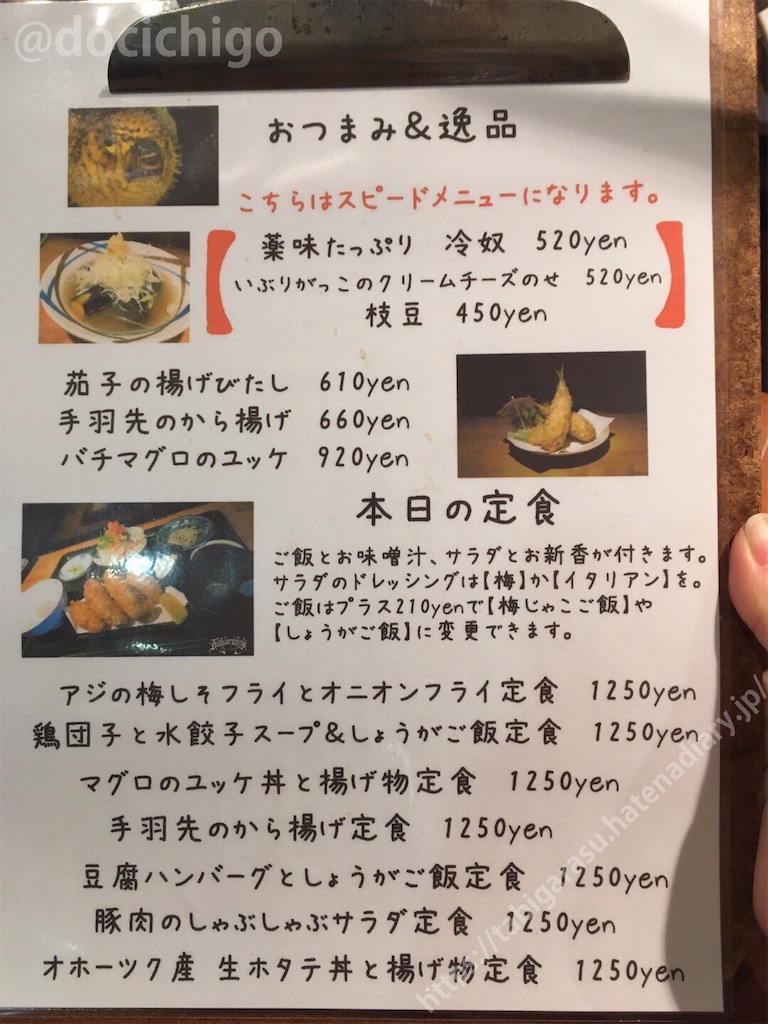 @docichigo
おつまみ&逸品
こちらはスピードメニューになります。
薬味たっぷり 冷奴 520yen
いぶりがっこのクリームチーズのせ 520yen
枝豆 450yen
茄子の揚げびたし 610yen
手羽先のから揚げ 660yen
バチマグロのユッケ 920yen
本日の定食
ご飯とお味噌汁、サラダとお新香が付きます。
サラダのドレッシングは【梅】か【イタリアン】を。
ご飯はプラス210yenで【梅じゃこご飯】や
【しょうがご飯】に変更できます。
アジの梅しそフライとオニオンフライ定食 1250yen
鶏団子と水餃子スープ&しょうがご飯定食 1250yen
マグロのユッケ丼と揚げ物定食 1250yen
手羽先のから揚げ定食 1250yen
豆腐ハンバーグとしょうがご飯定食 1250yen
豚肉のしゃぶしゃぶサラダ定食 1250yen
オホーツク産 生ホタテ丼と揚げ物定食 1250yen
http://tabigarasu.hatenadiary.jp/